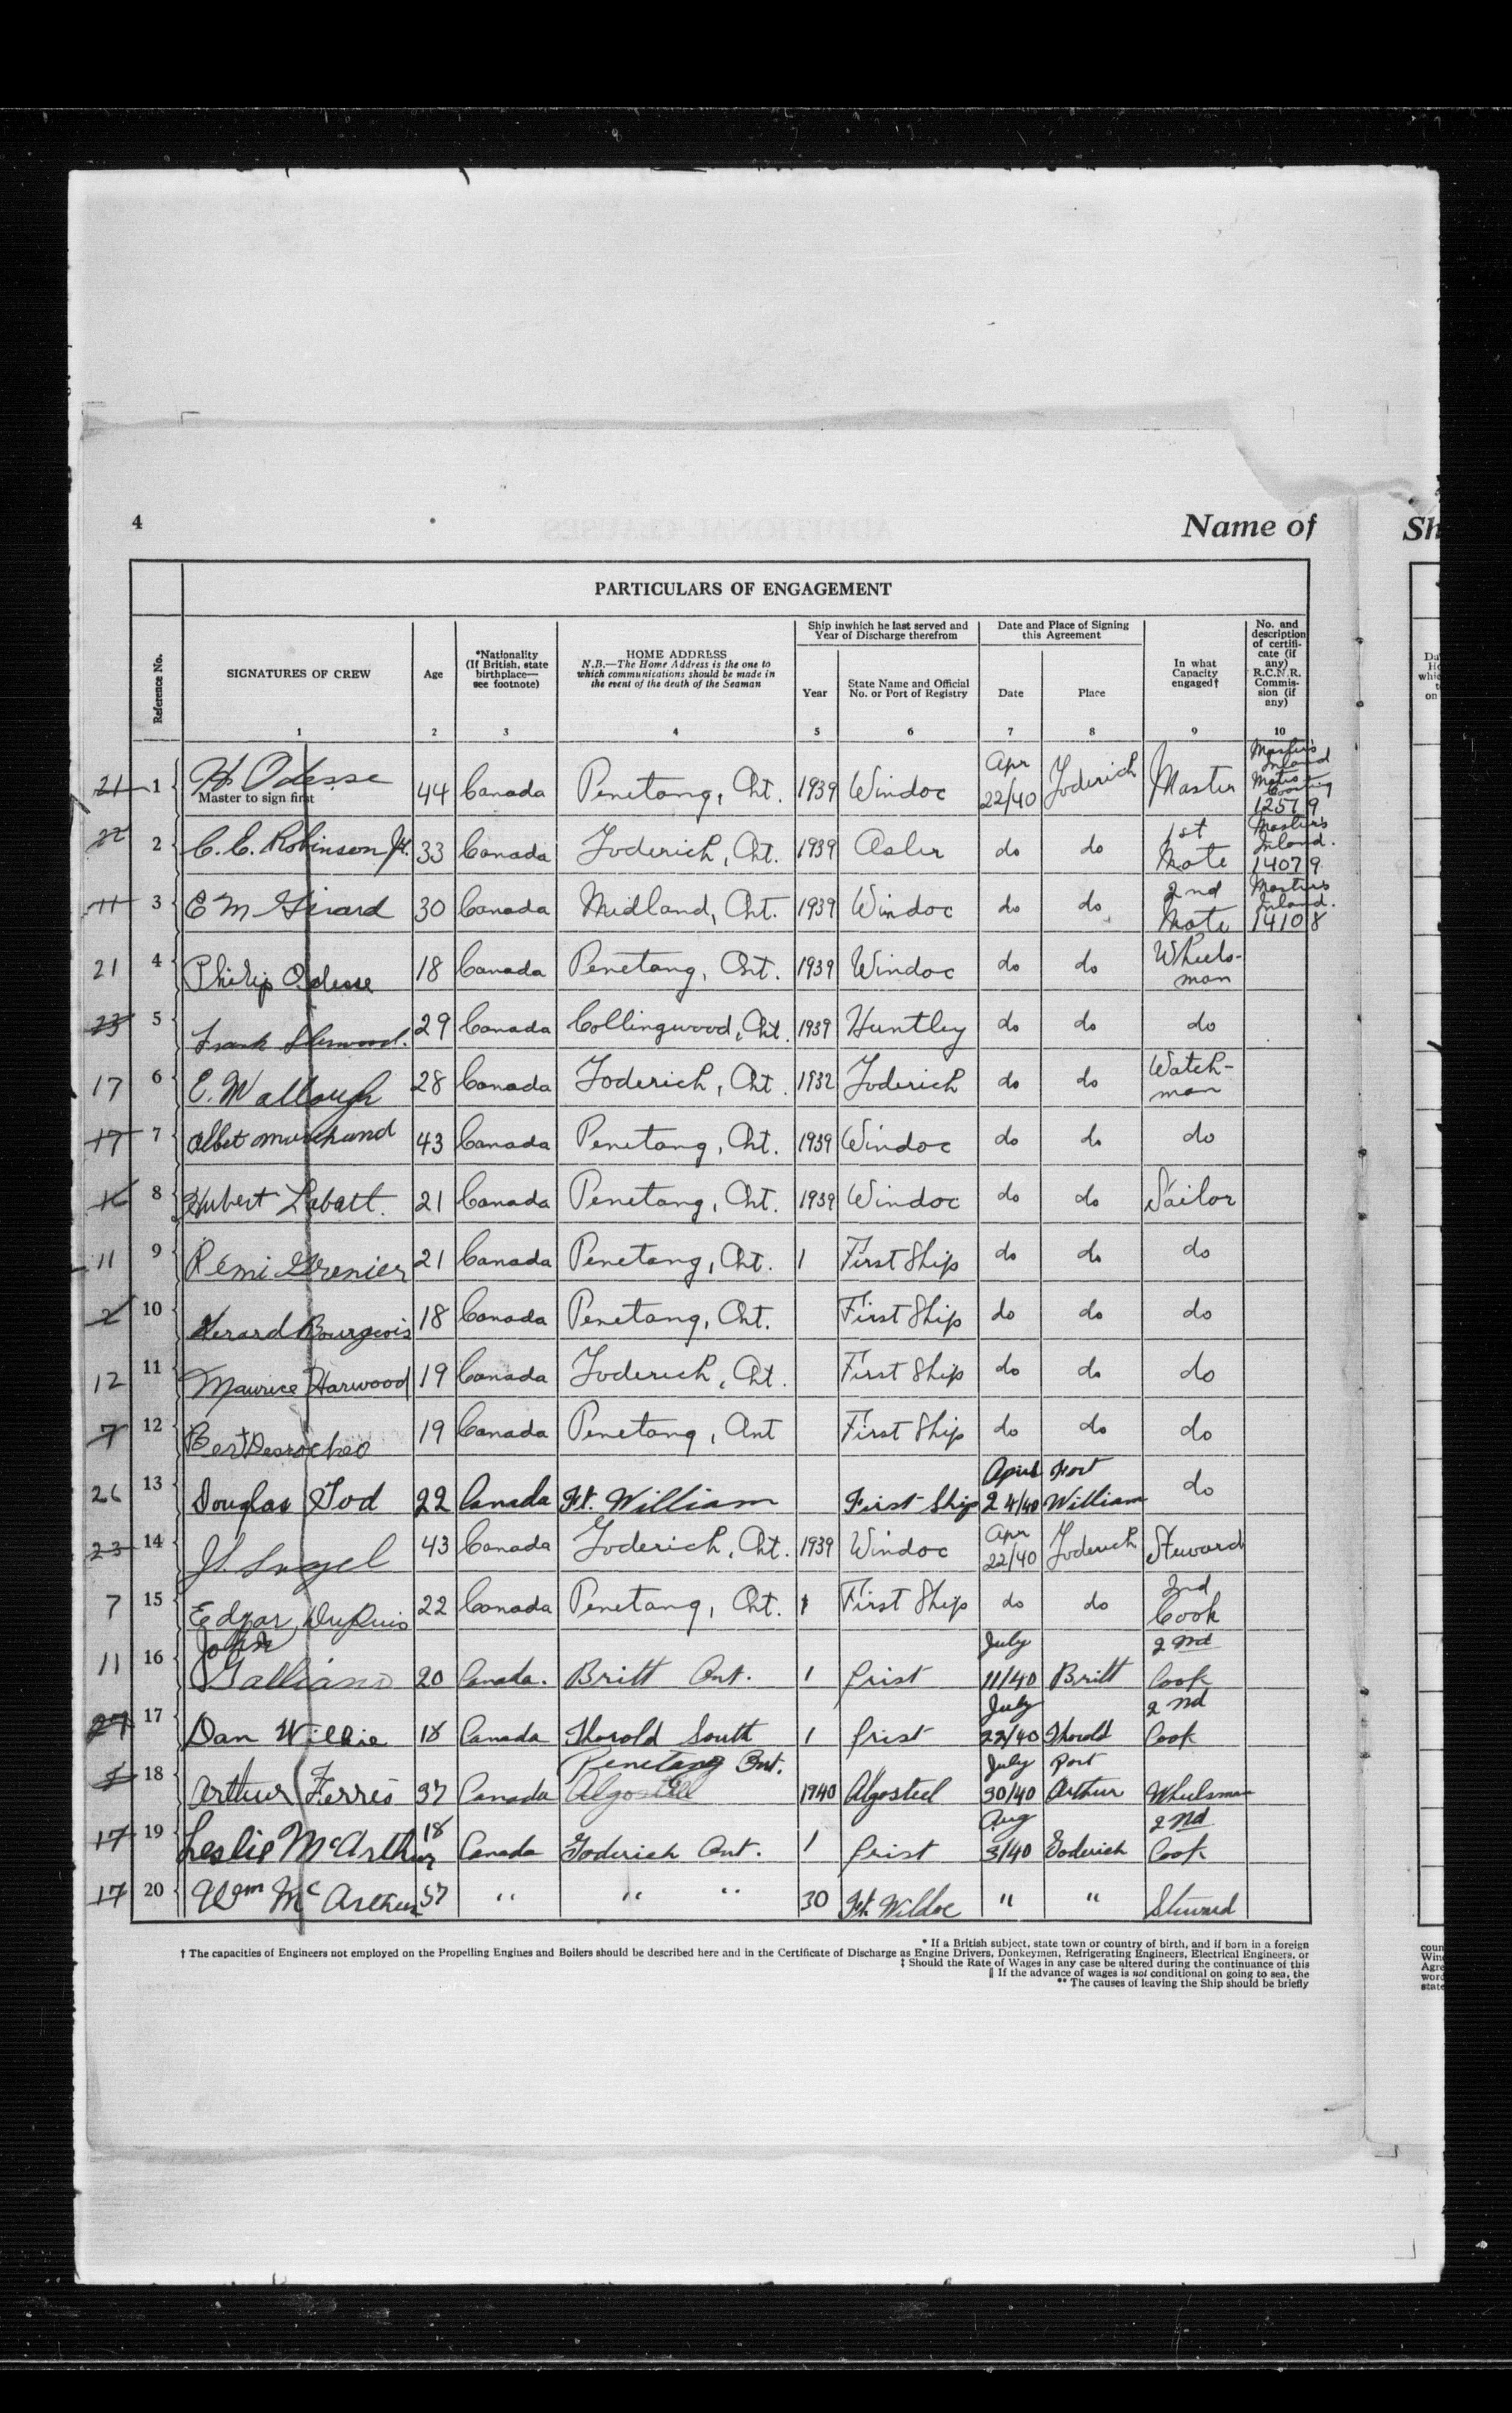 4
Name of
Sh
PARTICULARS OF ENGAGEMENT
Reference No.
SIGNATURES OF CREW
Age
*Nationality
(If British, state
birthplace—
see footnote)
HOME ADDRESS
N.B.—The Home Address is the one to
which communications should be made in
the event of the death of the Seaman
Ship inwhich he last served and
Year of Discharge therefrom
Year
State Name and Official
No. or Port of Registry
Date and Place of Signing
this Agreement
Date
Place
In what
Capacity
engaged†
No. and
description
of certifi-
cate (if
any)
R.C.N.R.
Commis-
sion (if
any)
1 2 3 4 5 6 7 8 9 10
21 1 H. Odesse 44 Canada Penetang, Ont. 1939 Windoc Apr 22/40 Goderich Master Master's Inland Coasting 12519
Master to sign first
22 2 C. E. Robinson 33 Canada Goderich, Ont. 1939 Osler do do 1st Mate Master's Inland. 14079
11 3 E M Girard 30 Canada Midland, Ont. 1939 Windoc do do 2nd Mate Masters Inland. 14108
21 4 Philip Odesse 18 Canada Penetang, Ont. 1939 Windoc do do Wheels-man
23 5 Frank 29 Canada Collingwood, Ont. 1939 Huntley do do do
17 6 E. Wallough 28 Canada Goderich, Ont. 1932 Goderich do do Watch-man
17 7 Albet Marchand 43 Canada Penetang, Ont. 1939 Windoc do do do
16 8 Hubert Labatt. 21 Canada Penetang, Ont. 1939 Windoc do do Sailor
11 9 Rémi Grenier 21 Canada Penetang, Ont. 1 First Ship do do do
2 10 Gerard Bourgeois 18 Canada Penetang, Ont. First Ship do do do
12 11 Maurice Harwood 19 Canada Goderich, Ont. First Ship do do do
7 12 Bert Desroches 19 Canada Penetang, Ont First Ship do do do
26 13 Douglas Tod 22 Canada Ft. William First Ship April 24/40 Fort William do
23 14 43 Canada Goderich, Ont. 1939 Windoc Apr 22/40 Goderich Steward
7 15 Edgar DuPuis 22 Canada Penetang, Ont. 1 First Ship do do 2nd Cook
11 16 John Galliano 20 Canada. Britt Ont. 1 frist July 11/40 Britt 2nd Cook
27 17 Dan Willie 18 Canada Thorold South 1 frist July 22/40 Thorold 2nd Cook
18 Arthur Ferris 37 Canada Penetang Ont. Algosteel 1940 Algosteel July 30/40 Port Arthur Wheelsman
17 19 Leslie McArthur 18 Canada Goderich Ont. 1 frist Aug 3/40 Goderich 2nd Cook
17 20 Wm McArthur 57 " " " 30 Ft. Wildoc " " Steward
* If a British subject, state town or country of birth, and if born in a foreign
† The capacities of Engineers not employed on the Propelling Engines and Boilers should be described here and in the Certificate of Discharge as Engine Drivers, Donkeymen, Refrigerating Engineers, Electrical Engineers, or
‡ Should the Rate of Wages in any case be altered during the continuance of this
‖ If the advance of wages is not conditional on going to sea, the
** The causes of leaving the Ship should be briefly